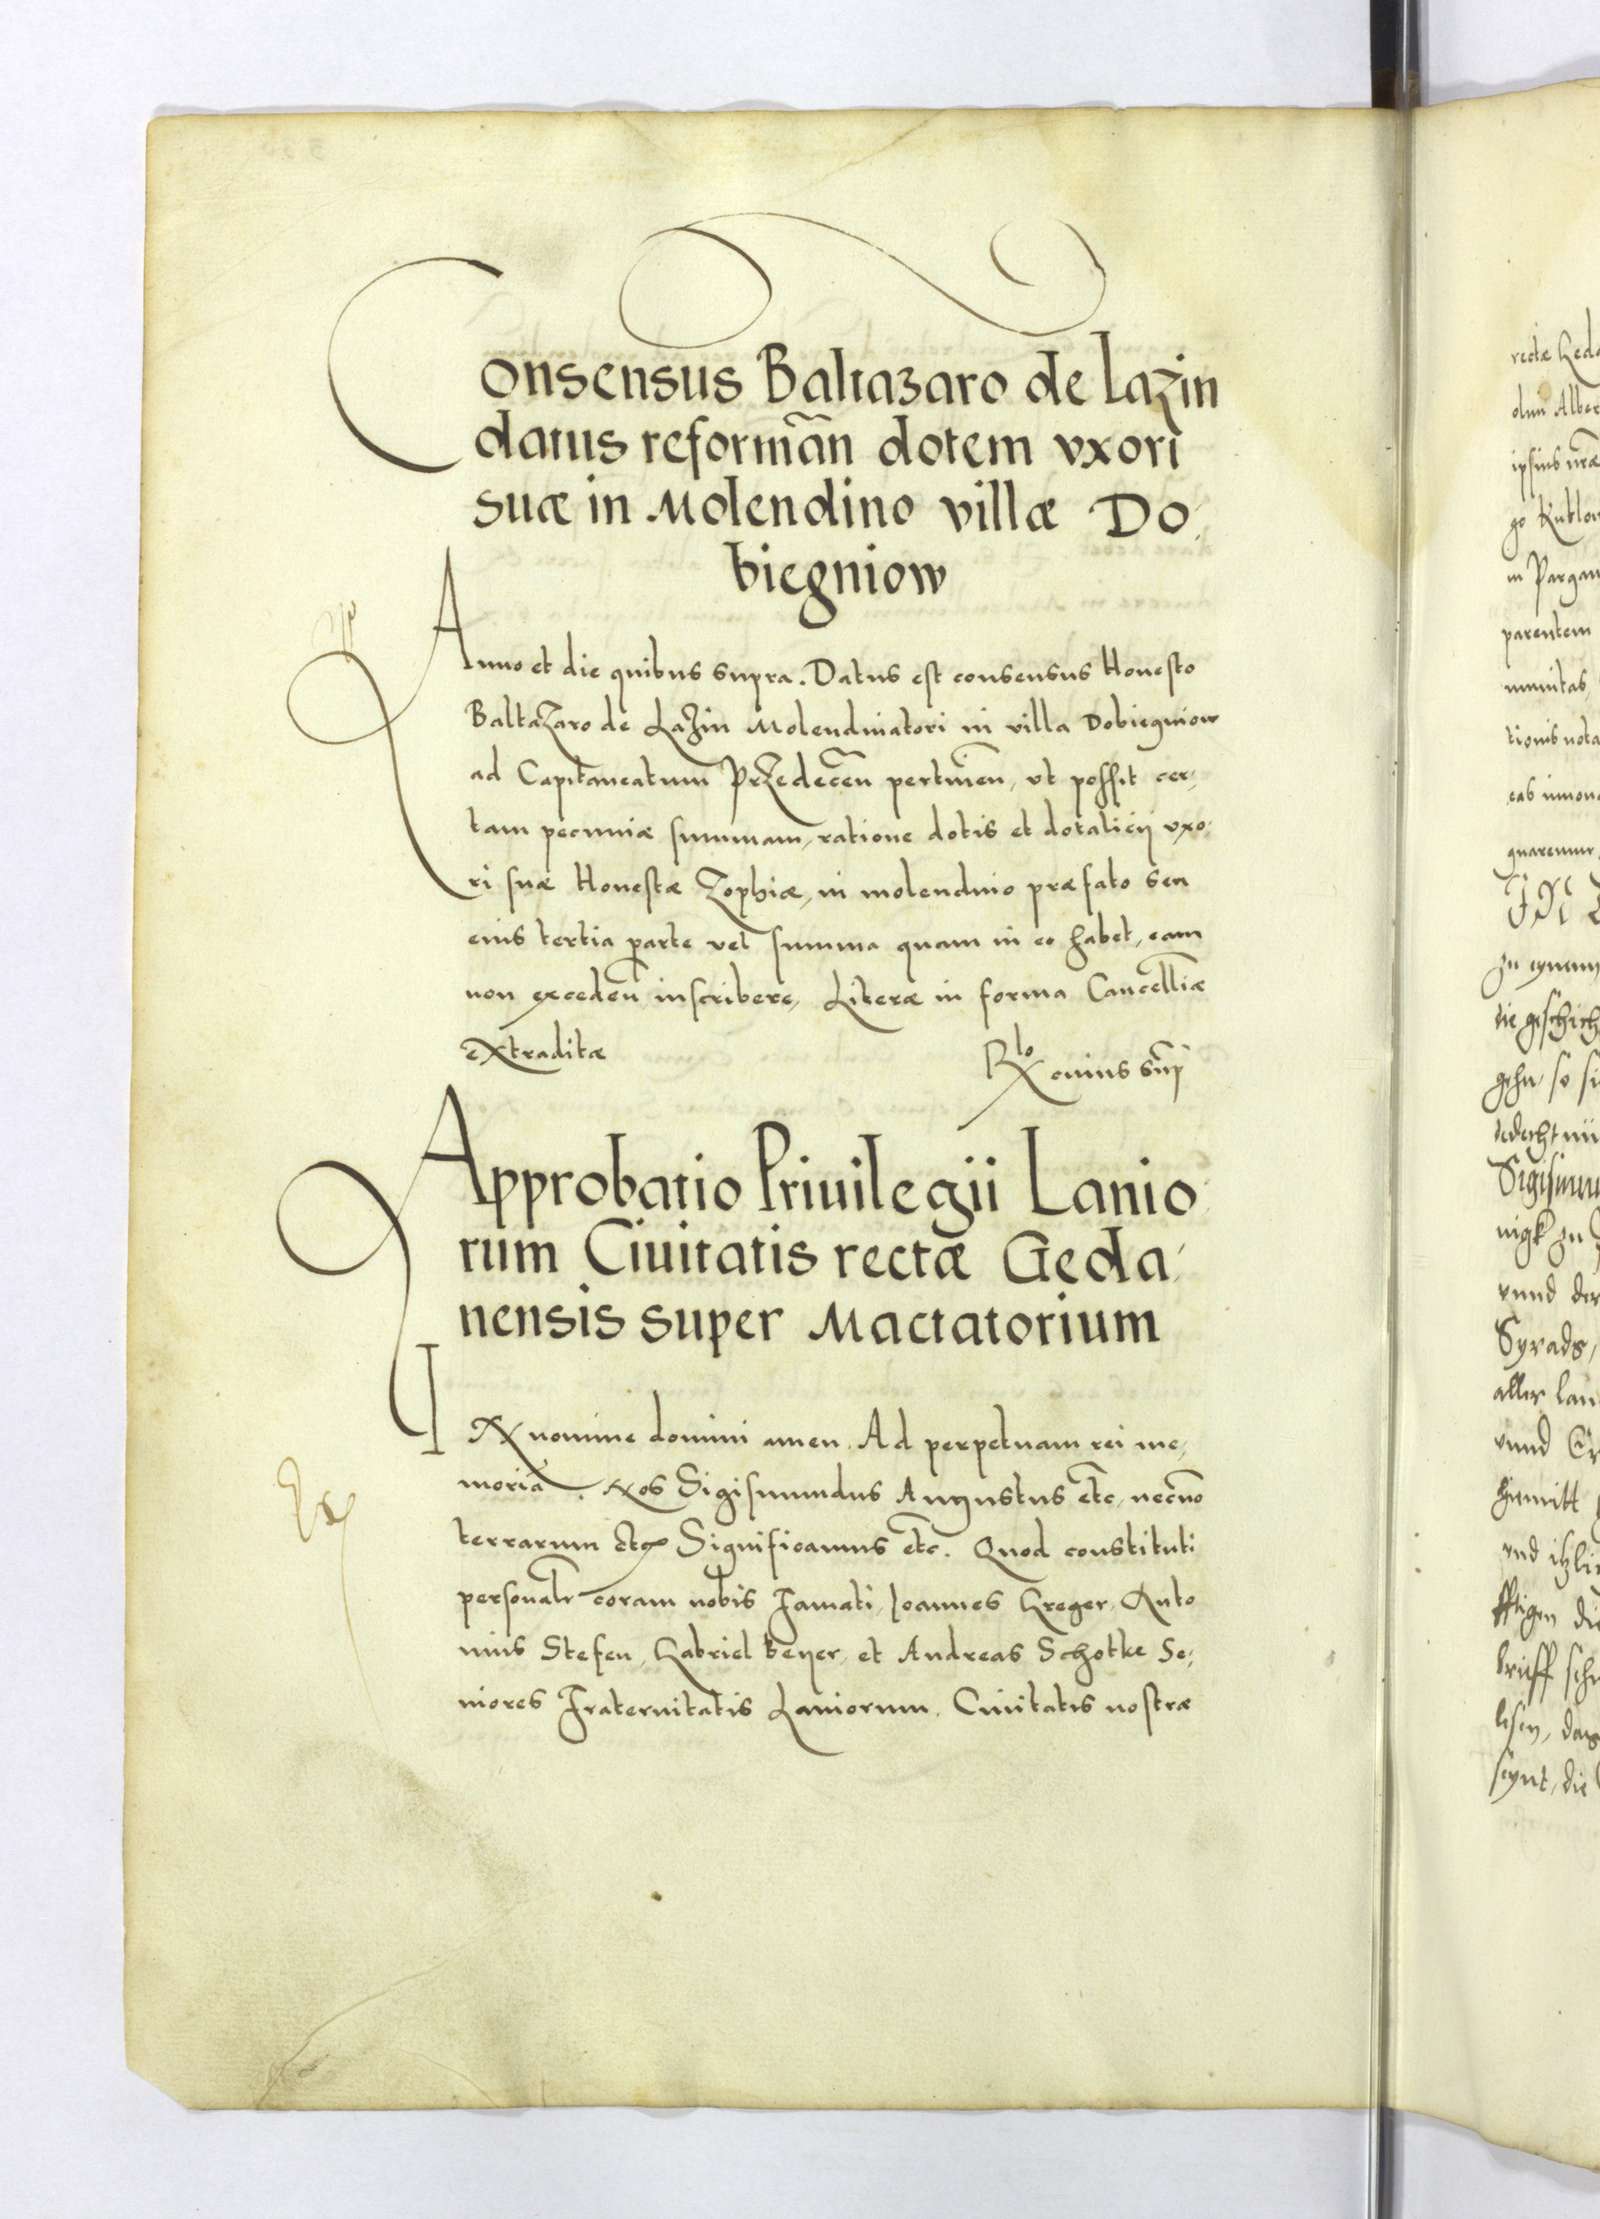 Consensus Baltazaro de Lazin
datus reforman̄ dotem vxori
suæ in Molendino villæ Do,
biegniow
Anno et die quibus supra. Datus est consensus Honesto
Baltazaro de Lazin Molendinatori in villa Dobiegniow
ad Capitaneatum Przedecēn pertinēn, vt possit cer,
tam pecuniæ summam, ratione dotis et dotalicij vxo,
ri suæ Honestæ Zophiæ, in molendino præfato seu
eius tertia parte vel summa quam in eo habet, eam
non exceden̄ inscribere, Literæ in forma Cancellīæ
extraditæ
Rlo cuius sup̄
Approbatio Priuilegii Lanio,
rum Ciuitatis rectæ Geda,
nensis super Mactatorium
IN nomine domini amen. Ad perpetuam rei me,
moriā. Nos Sigismundus Augustus etc, necno
terrarum etc Significamus etc. Quod constituti
personalr coram nobis Famati, Ioannes Greger, Anto
nius Stefen, Gabriel Beyer, et Andreas Schotke Se,
niores Fraternitatis Laniorum, Ciuitatis nostræ
Ex
rectæ Geda
olim Alber
ipsius nræ
in Pargam
parentem
tionis nota
eas innou
IN
die geschich
gehn, so si
Sigismun
nigk zu
vnnd der
Syrads,
aller lan
hiemitt
brieff sch
lesen, das
seynt, die